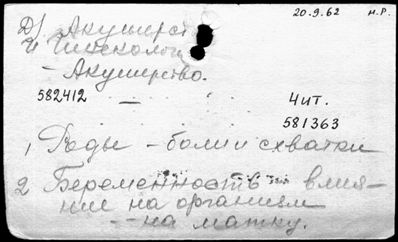 20.9.62 м.р.
Д/ Акушерст
и Гинеколог
- Акушерство.
582412 — Чит.
581363
1 Роды - боли и схватки
2 Беременность - влия-
ние на организм
-- на матку.